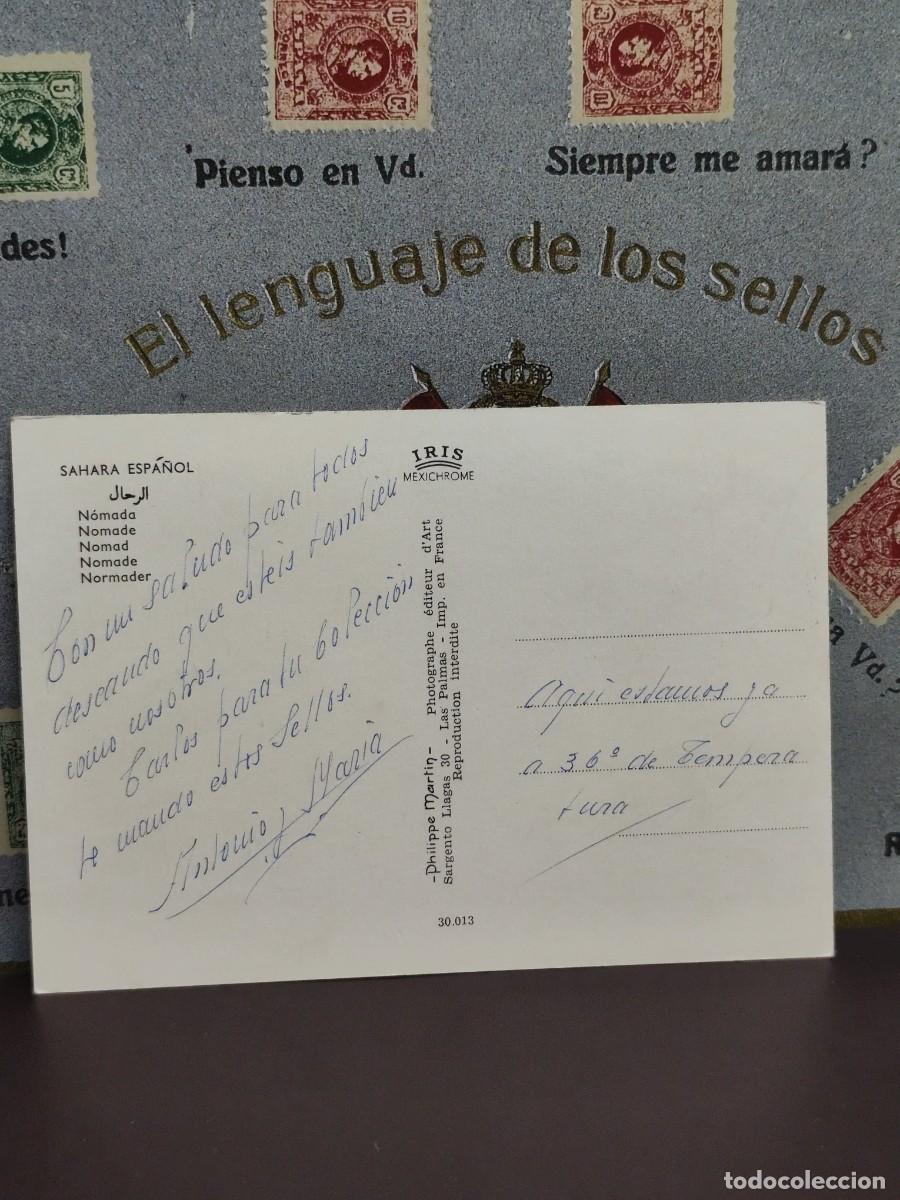 5
Cs
10
ESPAÑA
ESPAÑA
'Pienso en Vd.
Siempre me amará?
des!
El lenguaje de los sellos
SAHARA ESPAÑOL
الرحال
Nómada
Nomade
Nomad
Nomade
Normader
IRIS
MEXICHROME
Con un saludo para todos
deseando que esteis tambien
como nosotros.
Carlos para tu Colección
te mando estos Sellos.
Antonio y Maria
-Philippe Martin- Photographe éditeur d'Art
Sargento Llagas 30 - Las Palmas - Imp. en France
Reproduction interdite
30.013
Aqui estamos ya
a 36º de Tempera
tura
Vd.?
ne
todocoleccion